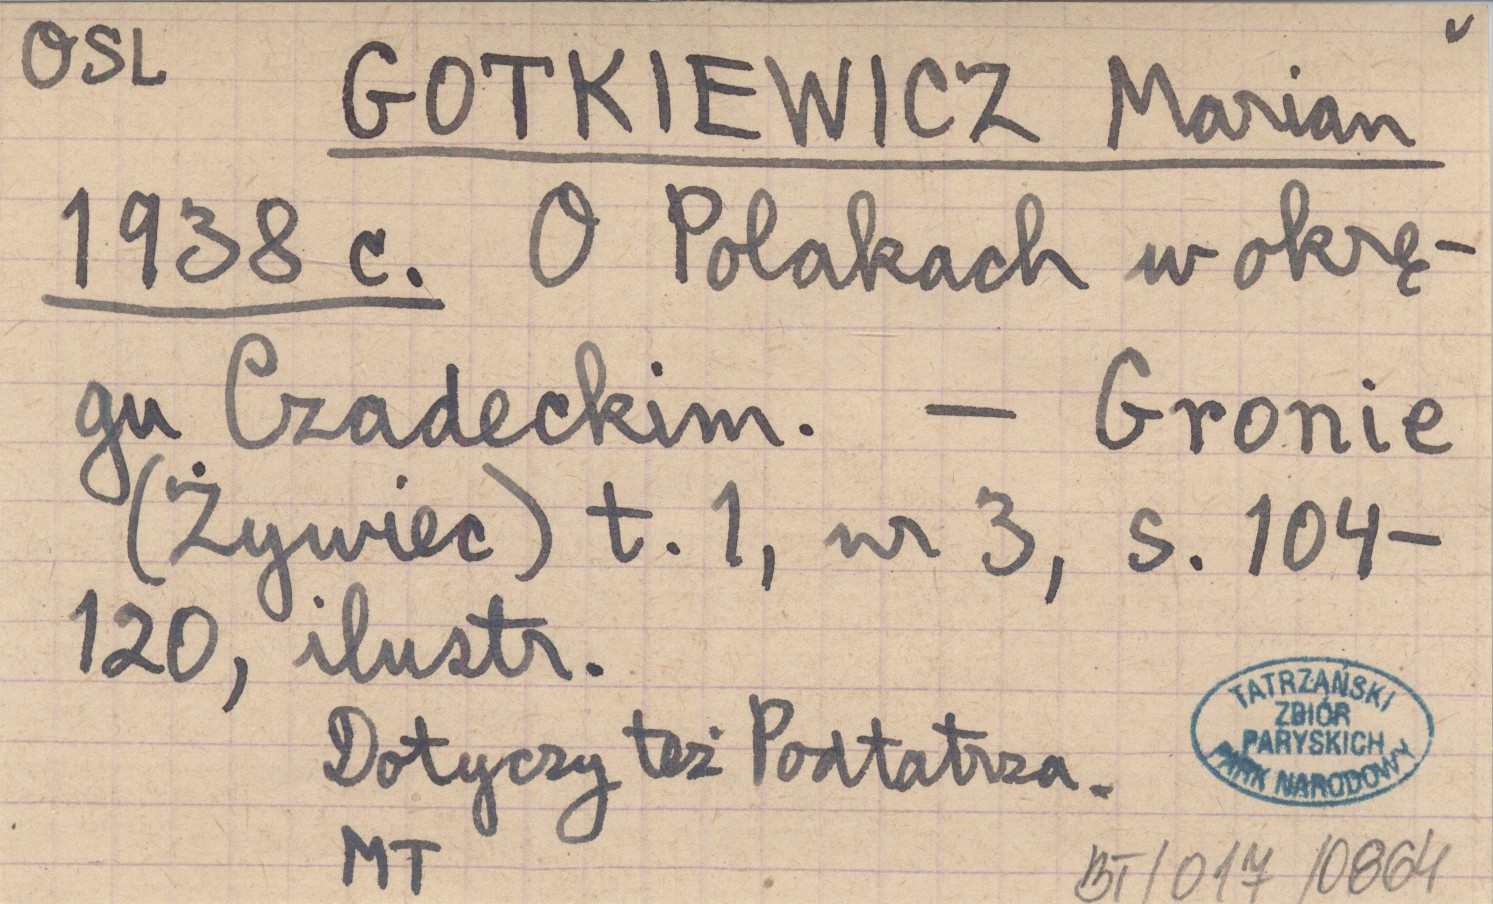 OSL
v
GOTKIEWICZ Marian
1938 c. O Polakach w okrę-
gu Czadeckim. — Gronie
(Żywiec) t. 1, nr 3, s. 104-
120, ilustr.
Dotyczy też Podtatrza.
MT
TATRZAŃSKI
ZBIÓR
PARYSKICH
PARK NARODOWY
BT/017/0864